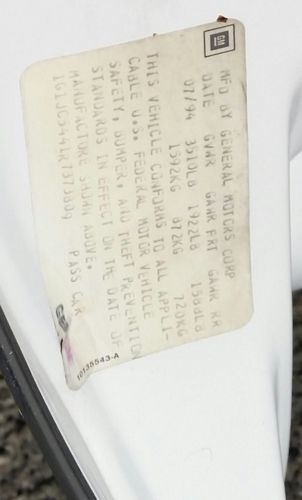 GM
MFD BY GENERAL MOTORS CORP
DATE GVWR GAWR FRT GAWR RR
07/94 3510LB 1922LB 1588LB
1592KG 872KG 720KG
THIS VEHICLE CONFORMS TO ALL APPLI-
CABLE U.S. FEDERAL MOTOR VEHICLE
SAFETY, BUMPER, AND THEFT PREVENTION
STANDARDS IN EFFECT ON THE DATE OF
MANUFACTURE SHOWN ABOVE.
PASS CAR
10135543-A